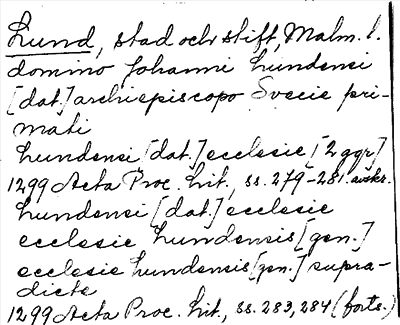 Lund, stad och stift, Malm. l.
domino Johanni Lundensi
[dat.] archiepiscopo Svecie pri-
mati
Lundensi [dat.] ecclesie [2 ggr]
1299 Acta Proc. lit., ss. 279-281. avskr.
Lundensi [dat.] ecclesie
ecclesie Lundensis [gen.]
ecclesie Lundensis [gen.] supra-
dicte
1299 Acta Proc. lit., ss. 283, 284 (forts.)